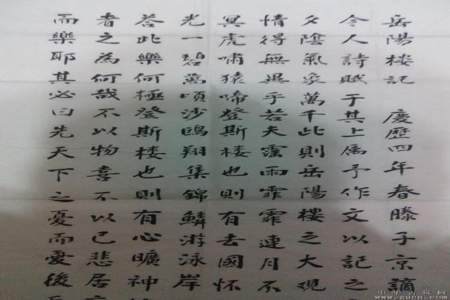 岳陽楼記 慶歷四年春滕子京謫
令人詩賦于其上屬予作文以記之
夕陰氣象萬千此則岳陽樓之大觀
情得無異乎若夫霪雨霏霏連月不
冥虎嘯猿啼登斯楼也則有去國懷
光一碧萬頃沙鷗翔集錦鱗游泳岸
答此樂何極登斯楼也則有心曠神
者之為何哉不以物喜不以己悲居
而樂耶其必曰先天下之憂而憂後